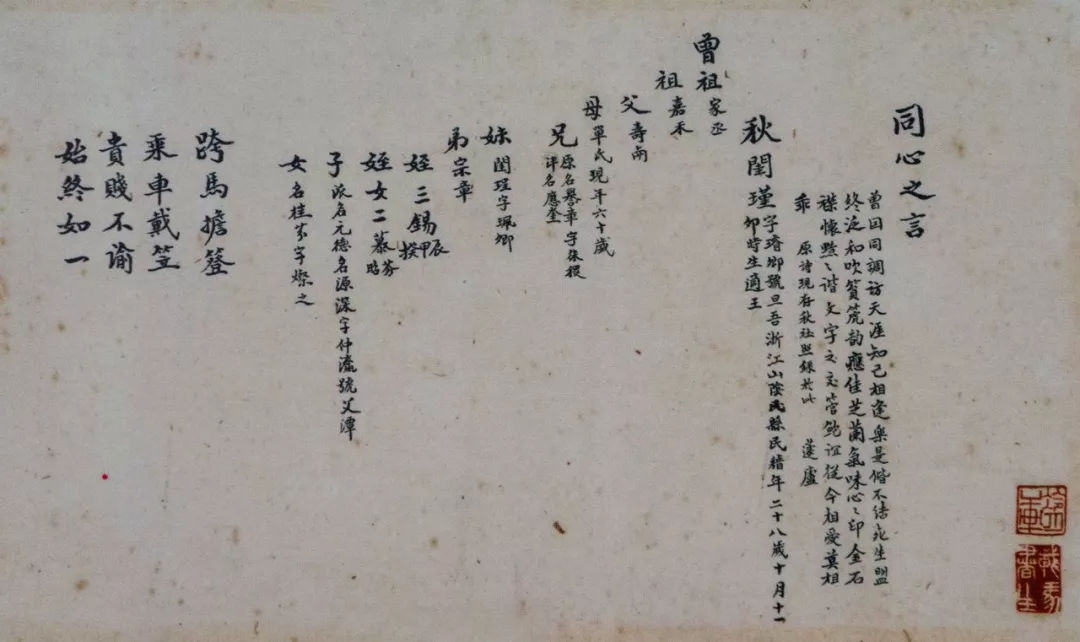 同心之言
曾因同調訪天涯知己相逢樂是偕不結死生盟
終泛和吹箎韵應佳芝蘭氣味心〻印金石
襟懷默〻諧文字之交管鮑誼從今相愛莫相
乖 原詩現存秋社照錄於此 蓬廬
秋閨瑾字璿卿號旦吾浙江山陰民縣民籍年二十八歲十月十一
卯時生適王
曾祖家丞
祖嘉禾
父壽南
母單氏現年六十歲
兄原名譽章字徠椴
譯名應奎
妹閨珵字珮卿
弟宗章
姪三錫辰甲揆
姪女二蓁芬昭
子派名元德名源深字仲瀛號艾潭
女名桂芬字燦之
跨馬擔簦
乘車戴笠
貴賤不諭
始終如一